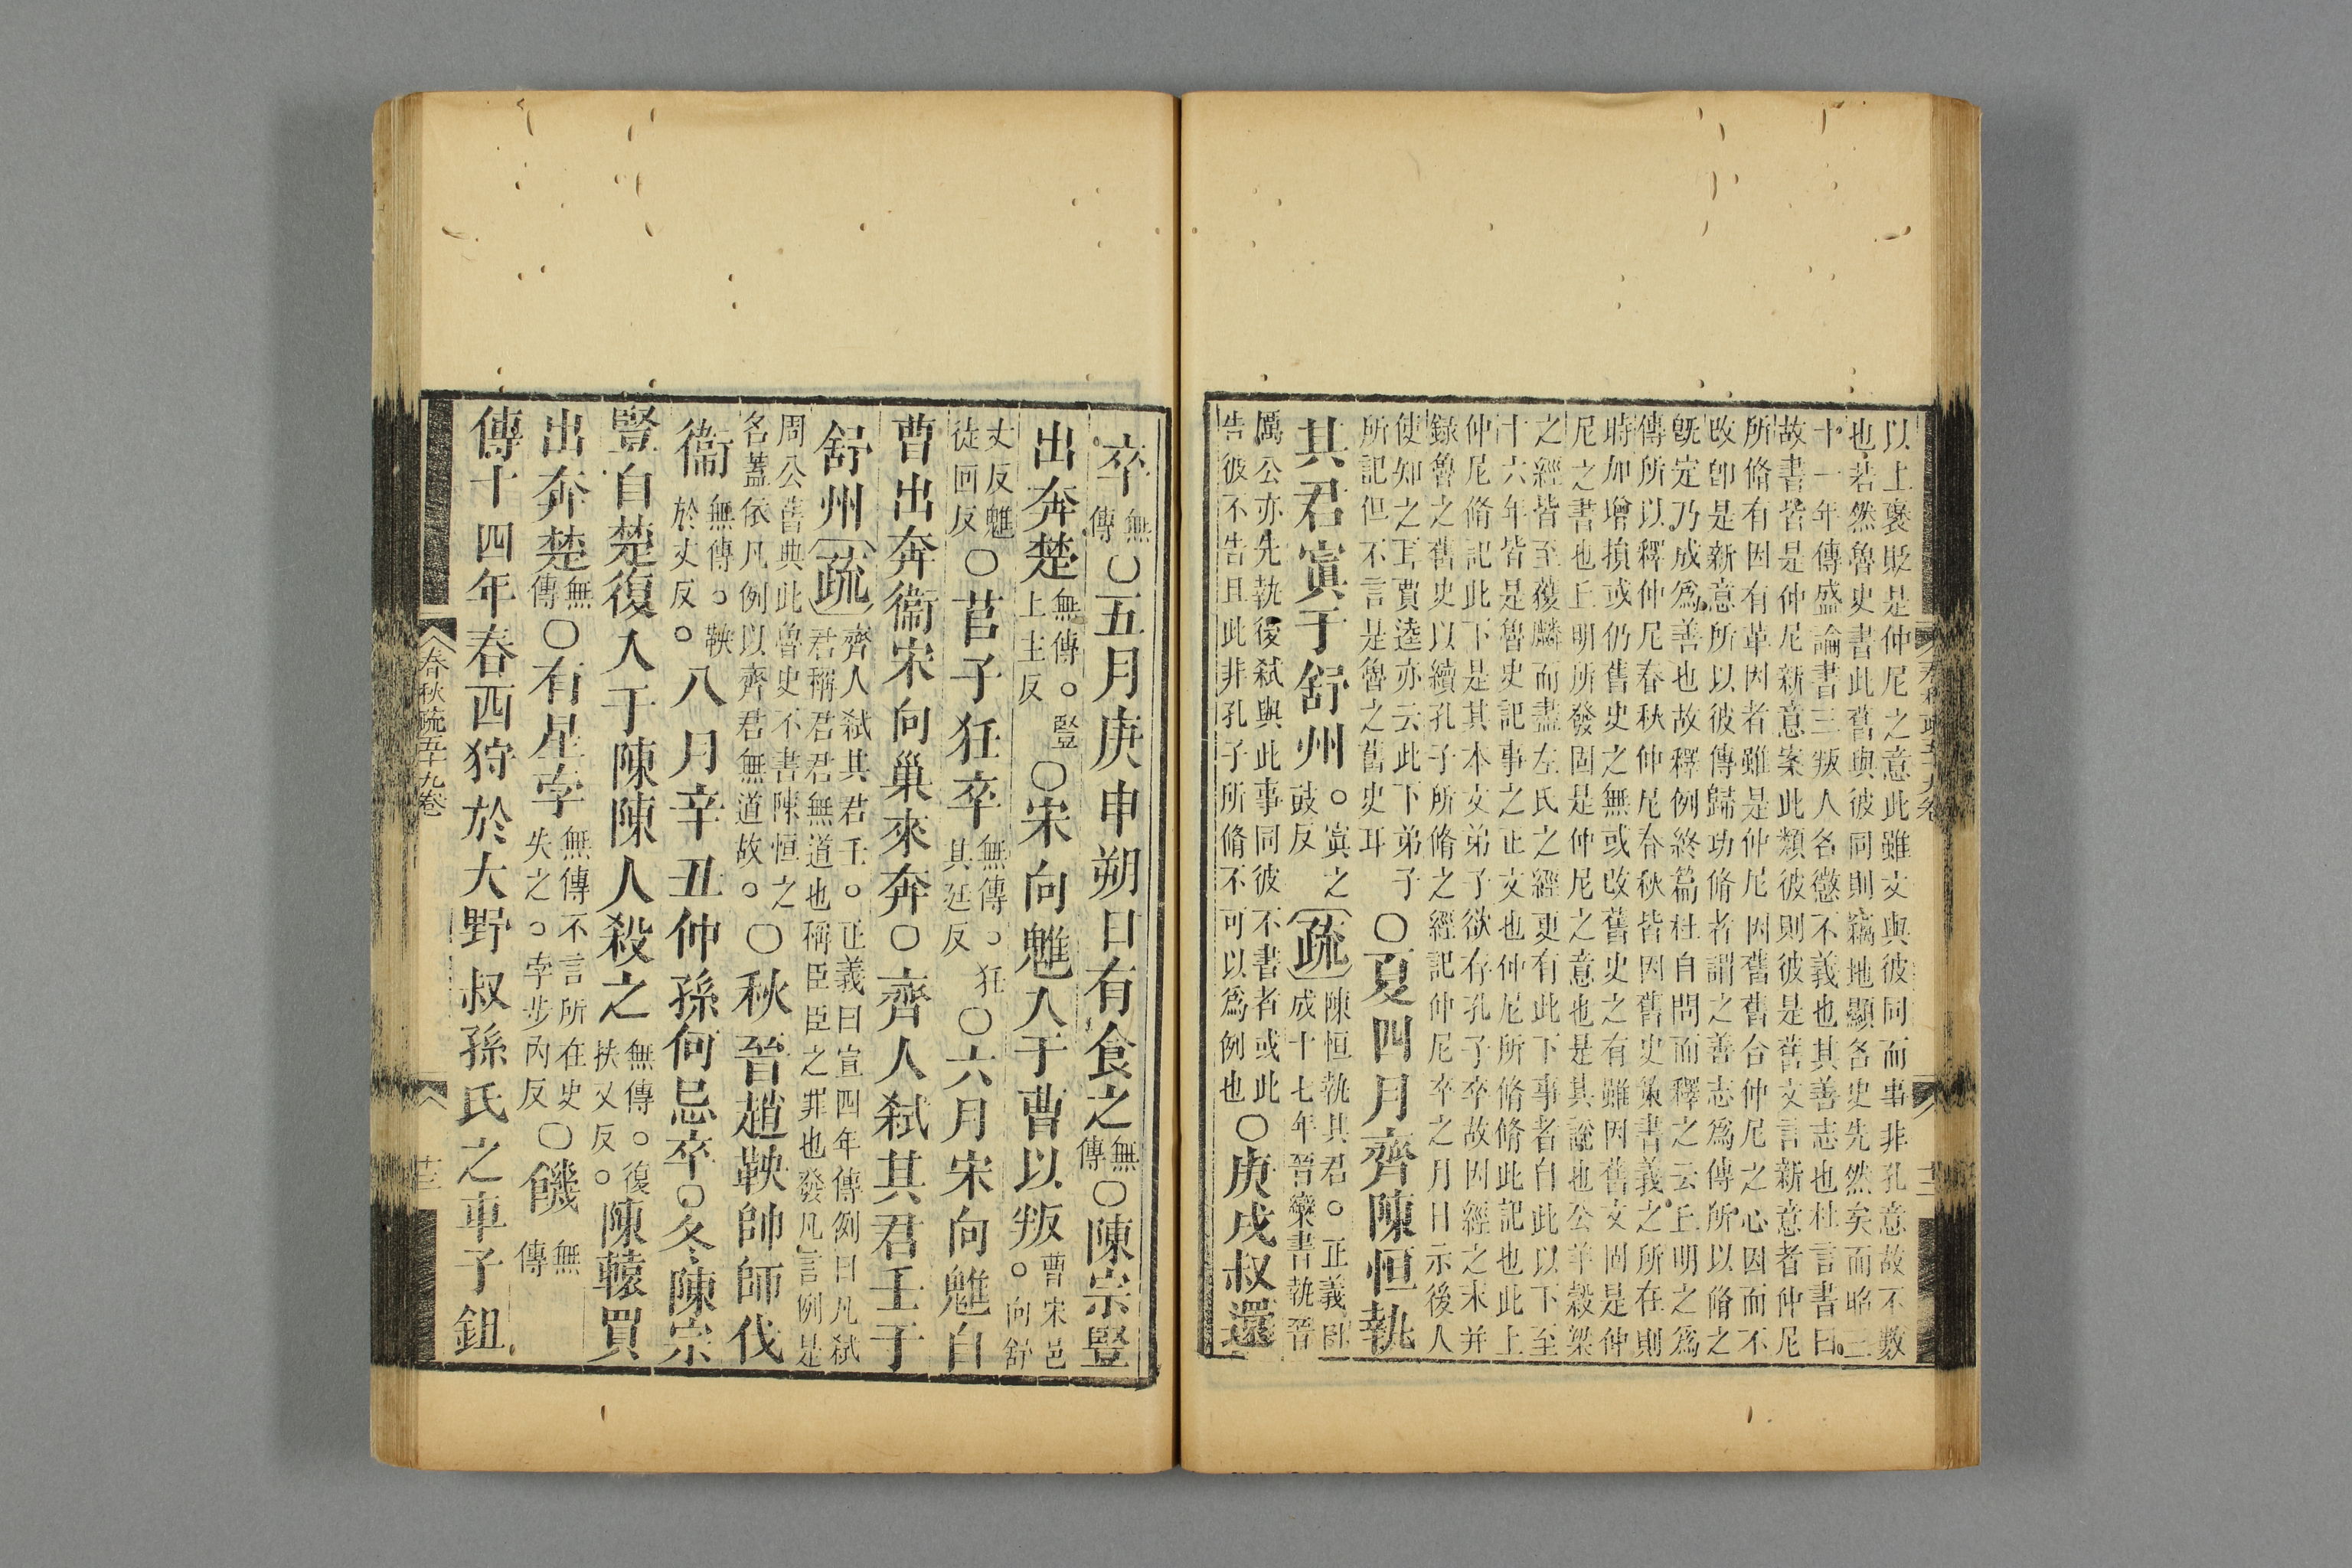 以上褒貶是仲尼之意此雖文與彼同而事非孔意故不數
也若然魯史書此舊與彼同則竊地顯名史先然矣而昭三
十一年傳盛論書三叛人名懲不義也其善志也杜言書曰
故書皆是仲尼新意案此類彼則彼是舊文言新意者仲尼
所脩有因有革因者雖是仲尼因舊舊合仲尼之心因而不
改卽是新意所以彼傳歸功脩者謂之善志爲傳所以脩之
旣定乃成爲善也故釋例終篇杜自問而釋之云丘明之爲
傳所以釋仲尼春秋仲尼春秋皆因舊史策書義之所在則
時加增損或仍舊史之無或改舊史之有雖因舊文固是仲
尼之書也丘明所發固是仲尼之意也是其說也公羊穀梁
之經皆至獲麟而盡左氏之經更有此下事者自此以下至
十六年皆是魯史記事之正文也仲尼所脩脩此記也此上
仲尼脩記此下是其本文弟子欲存孔子卒故因經之末并
錄魯之舊史以續孔子所脩之經記仲尼卒之月日示後人
使知之耳賈逵亦云此下弟子
所記但不言是魯之舊史耳
○夏四月齊陳恒執
其君寘于舒州
。寘之
豉反
疏
陳恒執其君。正義曰
成十七年晉欒書執晉
厲公亦先執後弒與此事同彼不書者或此
告彼不告且此非孔子所脩不可以爲例也
○庚戌叔還
春秋疏五十九卷
卒
無
傳
○五月庚申朔日有食之
無
傳
○陳宗豎
出奔楚
無傳。豎
上主反
○宋向魋入于曹以叛
曹宋邑
。向舒
丈反魋
徒回反
○莒子狂卒
無傳。狂
其廷反
○六月宋向魋自
曹出奔衞宋向巢來奔○齊人弒其君壬于
舒州
疏
齊人弒其君壬。正義曰宣四年傳例曰凡弒
君稱君君無道也稱臣臣之罪也發凡言例是
周公舊典此魯史不書陳恒之
名蓋依凡例以齊君無道故。
○秋晉趙鞅帥師伐
衞
無傳。鞅
於丈反。
八月辛丑仲孫何忌卒○冬陳宗
豎自楚復入于陳陳人殺之
無傳。復
扶又反。
陳轅買
出奔楚
無
傳
○有星孛
無傳不言所在史
失之。孛步內反
○饑
無
傳
傳十四年春西狩於大野叔孫氏之車子鉏
春秋疏五十九卷
十三